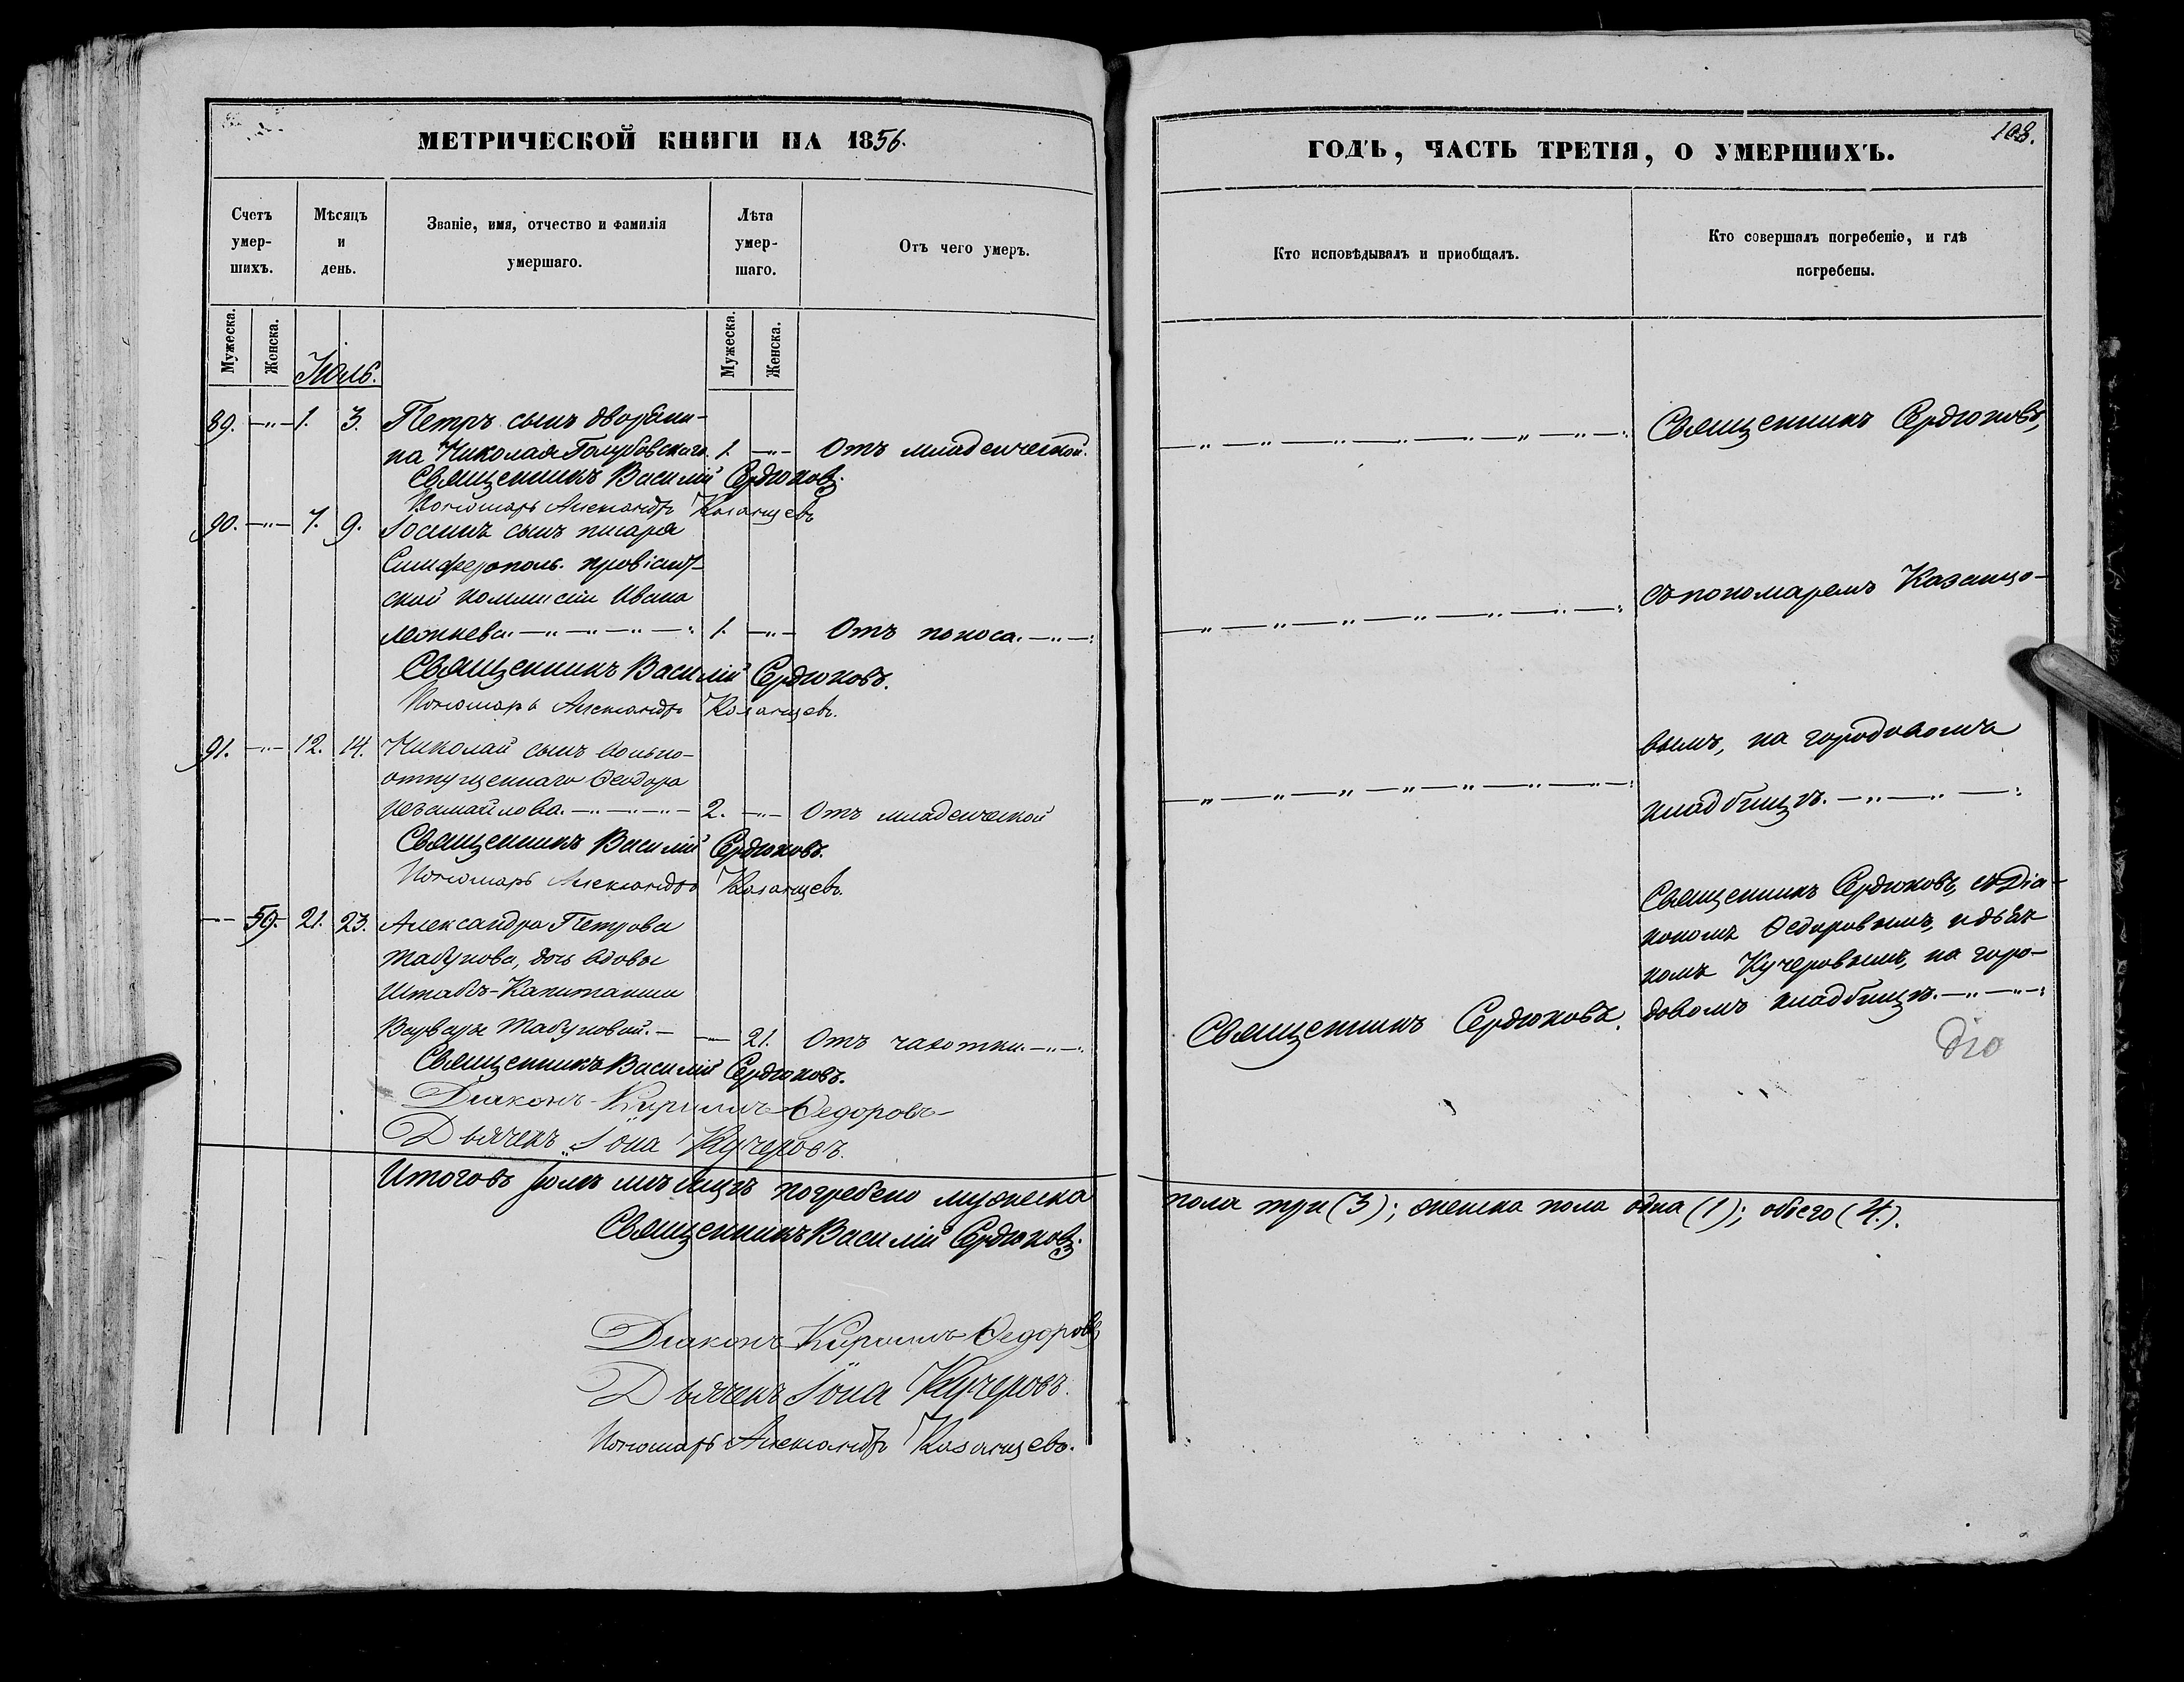 МЕТРИЧЕСКОЙ КНИГИ НА 1856.
Счетъ умер- шихъ.
Мѣсяцъ и день.
Званіе, имя, отчество и фамилія умершаго.
Лѣта умер- шаго.
Отъ чего умеръ.
Мужеска.
Женска.
Іюль.
Мужеска.
Женска.
89. —„— 1. 3. Петръ сынъ дворяни-
на Николая Голубовскаго. 1. —„— Отъ младенческой.
Священникъ Василій Сердюковъ.
Пономарь Александръ Казанцевъ
90. —„— 7. 9. Іосифъ сынъ писаря
Симферополь. провіант-
ской коммисіи Ивана
Леонтева. —„—„—„—: 1. —„— Отъ поноса. —„—:
Священникъ Василій Сердюковъ.
Пономарь Александръ Казанцевъ.
91. —„— 12. 14. Николай сынъ вольно-
отпущеннаго Ѳеодора
Измайлова. —„—„—„— 2. —„— Отъ младенческой
Священникъ Василій Сердюковъ.
Пономарь Александръ Казанцевъ.
—„— 59. 21. 23. Александра Петрова
Табунова, дочь вдовы
Штабъ-Капитанши
Варвары Табуновой. — —„— 21. Отъ чахотки. —„—:
Священникъ Василій Сердюковъ.
Діаконъ Кириллъ Ѳедоровъ
Дьячекъ Іона Кучеровъ.
Итого въ іюлѣ мѣсяцѣ погребено мужеска
Священникъ Василій Сердюковъ.
Діаконъ Кириллъ Ѳедоровъ
Дьячекъ Іона Кучеровъ.
Пономарь Александръ Казанцевъ.
108.
ГОДЪ, ЧАСТЬ ТРЕТІЯ, О УМЕРШИХЪ.
Кто исповѣдывалъ и пріобщалъ.
Кто совершалъ погребеніе, и гдѣ погребены.
—„—„—„—„—„—„—„—: Священникъ Сердюковъ,
—„—„—„—„—„—„—: съ пономаремъ Казанцо-
вымъ, на городовомъ
—„—„—„—„—„—„—„—: кладбищѣ. —„—„—:
Священникъ Сердюковъ, съ Діа-
кономъ Ѳедоровымъ, и дьяч-
комъ Кучеровымъ, на горо-
Священникъ Сердюковъ. довомъ кладбищѣ. —„—„—:
пола три (3); женска пола одна (1); обоего (4).